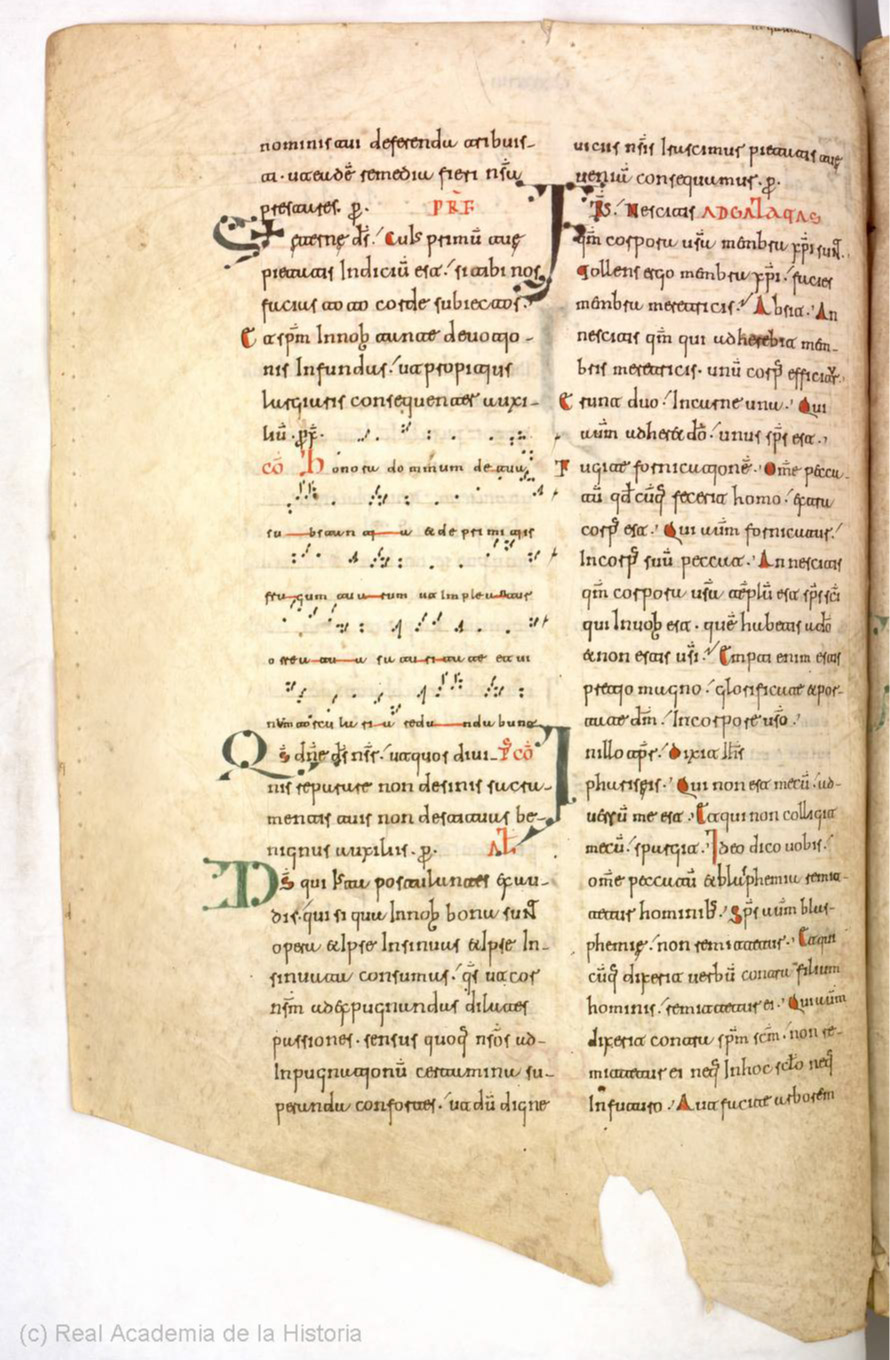 nominis tui deferenda tribuis-
ti. ut eudē remediu fieri nr̄a
prestares. p. PRF
Et eterne ds̄. Cuis primū tue
pietatis Indiciū est. si tibi nos
facias toto corde subiectos.
Et sp̄m Innob tante deuotio-
nis Infundas. ut propitius
largiaris consequenter auxi-
liū. p.
CŌ Honora dominum de tua
substantia et de primitiis
frugum tuarum ut Impleantur
orrea tua saturitate et ui
num torcularia redundabunt
Qs dn̄e ds̄ nsr̄. ut quos diui- PCŌ
nis reparare non desinis sacra-
mentis tuis non destituas be-
nignus auxiliis. p. AL
Ds̄ qui Ista postulantes exau-
dis. qui si qua Innob bona sunt
opera et Ipse Insinuas et Ipse In-
sinuata consumas. qs̄ ut cor
nsm̄ ad expugnandas dilates
passiones. sensus quoq nsōs ad-
Inpugnationū certamina su-
peranda confortes. ut dū digne
uiciis nsīs Irascimus pietatis tue
ueniā consequamus. p.
FRS. Nescitis AD GALATAS
qm̄ corpora usā mēnbra xp̄i sunt.
Tollens ergo mēnbra xp̄i. facies
mēnbra meretricis. Absit. An
nescitis qm̄ qui adheret mēn-
bris meretricis. unū corp efficitr.
Erunt duo. In carne una. Qui
autm̄ adheret dō. unus sp̄s est.
Fugite fornicationē. Om̄e pecca-
tū qd cūq fecerit homo. extra
corp est. Qui autm̄ fornicatus.
In corp suū peccat. An nescitis
qm̄ corpora usā tēplū est sp̄s sc̄i
qui In uob est. quē habetis a dō
et non estis usī. Empti enim estis
pretio magno. glorificate et por-
tate dm̄. In corpore usō.
In illo tp̄r. Dixit Ih̄s
phariseis. Qui non est mecū. ad-
uersū me est. Et qui non colligit
mecū. spargit. Ideo dico uobis.
om̄e peccatū et blasphemia remit-
tetur hominib. Sp̄s autm̄ blas-
phemie. non remittetur. Et qui
cūq dixerit uerbū contra filium
hominis. remittetur ei. Qui autm̄
dixerit contra sp̄m sc̄m. non re-
mittetur ei neq In hoc sc̄lo neq
In futuro. Aut facite arborem
(c) Real Academia de la Historia